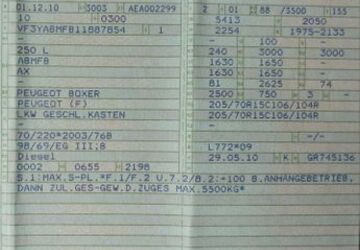 01.12.10 3003 AEA002299 2 01 88 /3500 155
10 0300 5413 - 2050
VF3YABMFB11887854 1 2254 1975-2133
- - 100 -
250 L 240 3000 3000
ABMFB 1630 1650 -
AX 1630 1650 -
- 81 2625 74
PEUGEOT BOXER 2500 750 3 -
PEUGEOT (F) 205/70R15C106/104R
LKW GESCHL.KASTEN 205/70R15C106/104R
- -
70/220*2003/76B -/-
98/69/EG III;B L772*09
Diesel 29.05.10 K GR745136
0002 0655 2198
S.1:MAX.5-PL.*F.1/F.2 U.7.2/8.2:+100 B.ANHÄNGEBETRIEB.
DANN ZUL.GES-GEW.D.ZUGES MAX.5500KG*